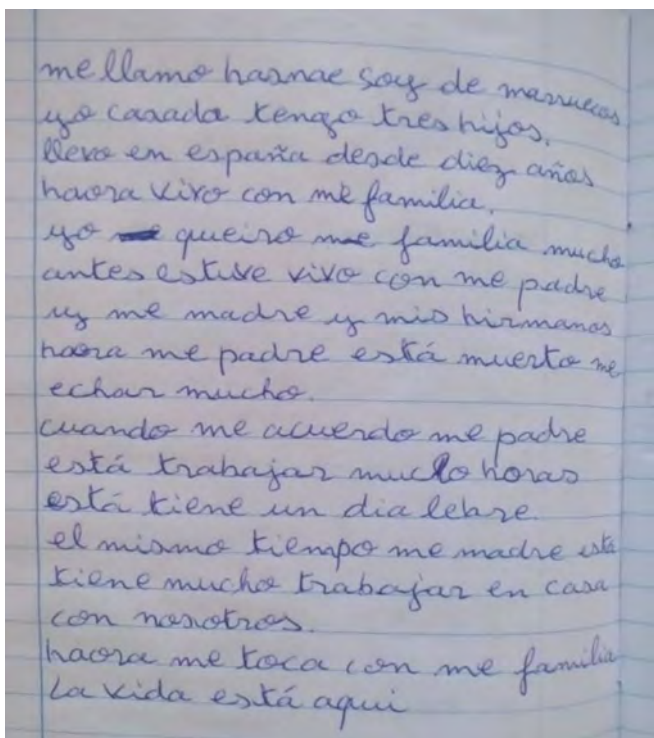 me llamo hasnae soy de marruecos
yo casada tengo tres hijos.
llevo en españa desde diez años
haora vivo con me familia.
yo me queiro me familia mucho
antes estuve vivo con me padre
y me madre y mis hirmanos
haora me padre está muerto me
echar mucho.
cuando me acuerdo me padre
está trabajar mucho horas
está tiene un dia lebre.
el mismo tiempo me madre está
tiene mucho trabajar en casa
con nosotros.
haora me toca con me familia
La vida está aqui